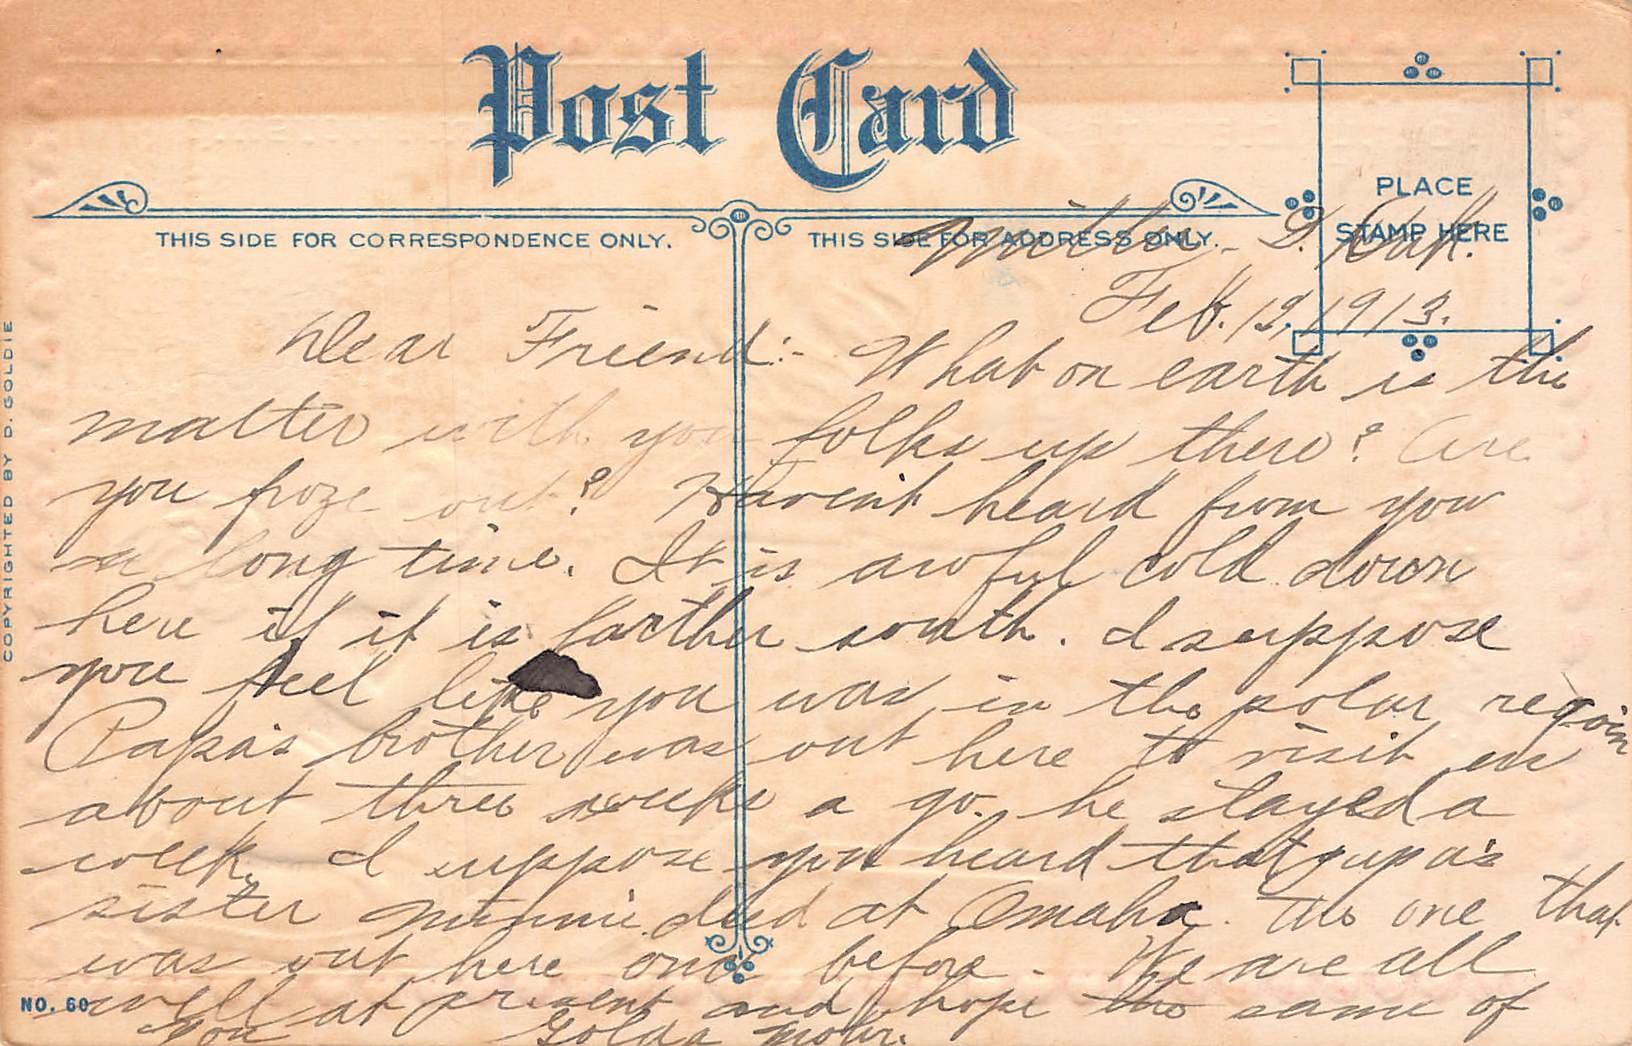 Post Card
PLACE
STAMP HERE
THIS SIDE FOR CORRESPONDENCE ONLY.
THIS SIDE FOR ADDRESS ONLY.
Miller - S. Dak.
Feb. 12, 1913.
Dear Friend:- What on earth is the
matter with you folks up there? Are
you froze out? Havent heard from you
a long time. It is awful cold down
here if it is farther south. I suppose
you feel like you was in the polar regoin
Papa's brother was out here to visit us
about three weeks a go. he stayed a
week. I suppose you heard that papa's
sister Minnie died at Omaha. The one that
was out here once before. We are all
well at present and hope the same of
you Golda Mohr.
COPYRIGHTED BY D. GOLDIE
NO. 60